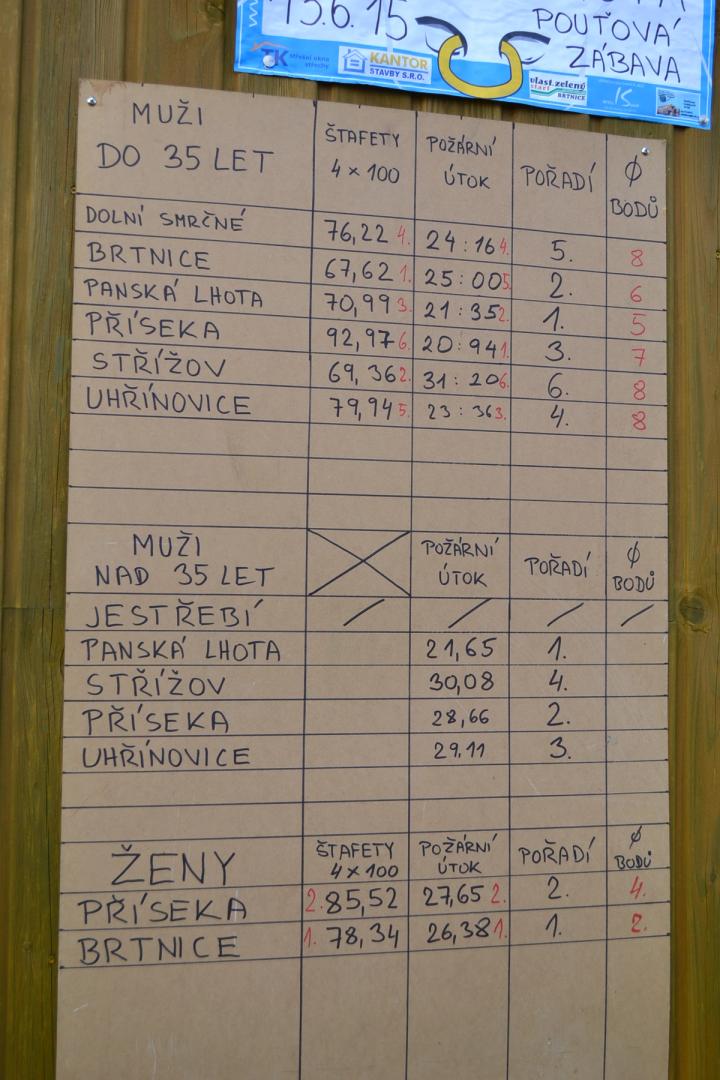 15.6.15
POUŤOVÁ
ZÁBAVA
TK střešní okna střechy
KANTOR
STAVBY S.R.O.
vlast.zelený
start
BRTNICE
MUŽI
DO 35 LET
ŠTAFETY
4 x 100
POŽÁRNÍ
ÚTOK
POŘADÍ
Ø
BODŮ
DOLNÍ SMRČNÉ 76,22 4. 24:16 4. 5. 8
BRTNICE 67,62 1. 25:00 5. 2. 6
PANSKÁ LHOTA 70,99 3. 21:35 2. 1. 5
PŘÍSEKA 92,97 6. 20:94 1. 3. 7
STŘÍŽOV 69,36 2. 31:20 6. 6. 8
UHŘÍNOVICE 79,94 5. 23:36 3. 4. 8
MUŽI
NAD 35 LET
POŽÁRNÍ
ÚTOK
POŘADÍ
Ø
BODŮ
JESTŘEBÍ / / / /
PANSKÁ LHOTA 21,65 1.
STŘÍŽOV 30,08 4.
PŘÍSEKA 28,66 2.
UHŘÍNOVICE 29.11 3.
ŽENY
ŠTAFETY
4 x 100
POŽÁRNÍ
ÚTOK
POŘADÍ
Ø
BODŮ
PŘÍSEKA 2. 85,52 27,65 2. 2. 4.
BRTNICE 1. 78,34 26,38 1. 1. 2.